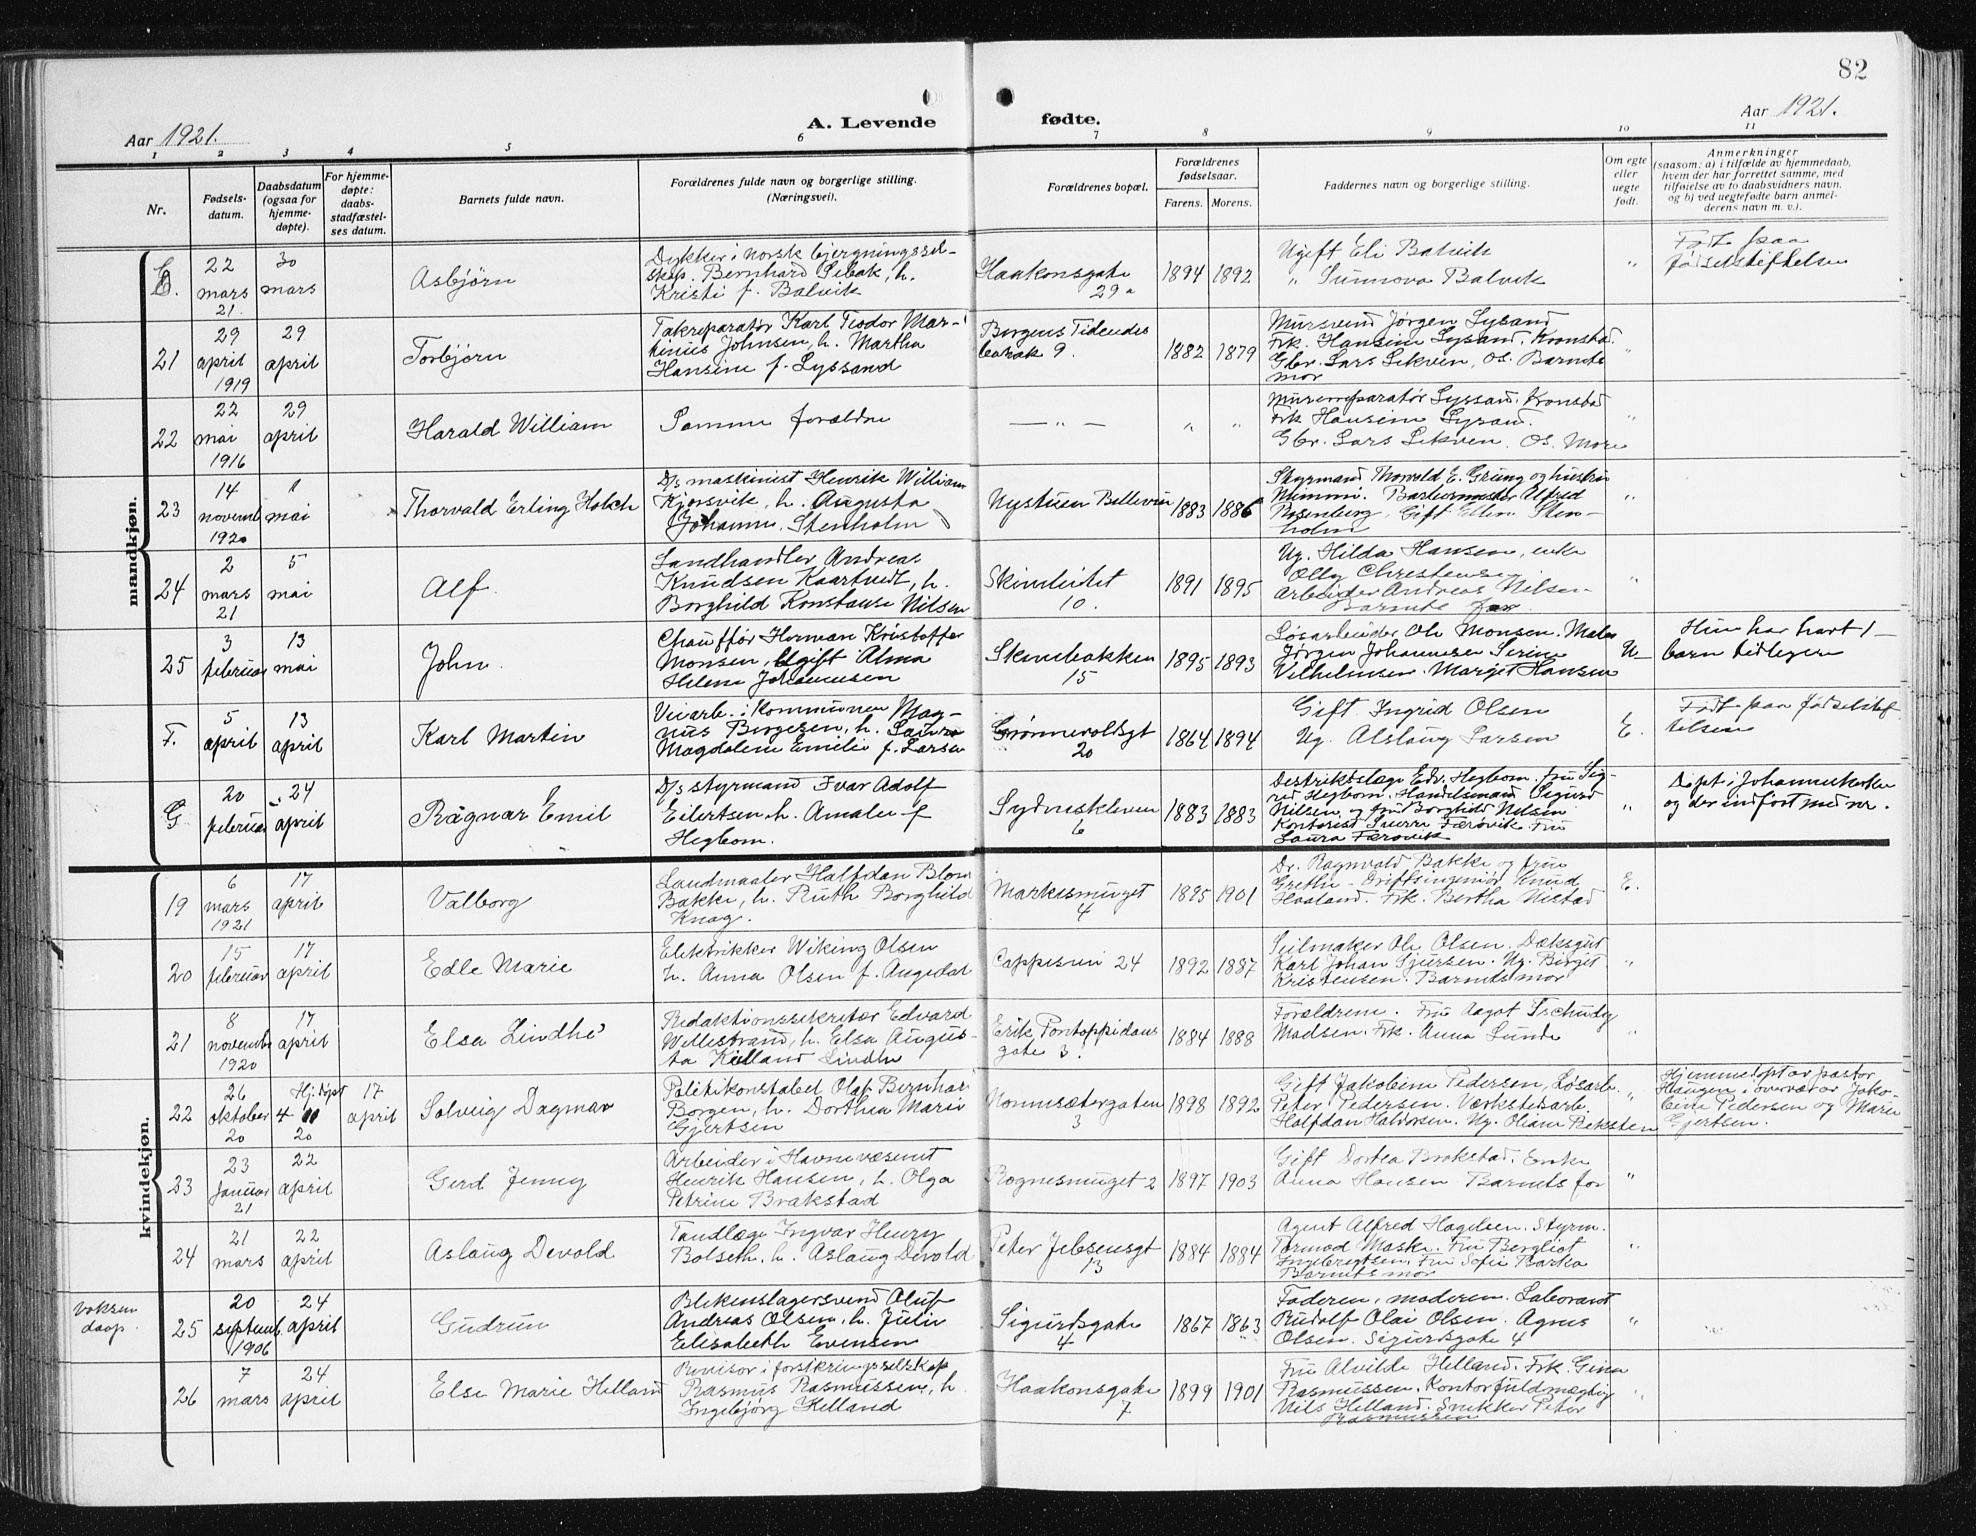 82
Aar 1921.
A. Levende
fødte.
Aar 1921.
1 2 3 4 5 6 7 8 9 10 11
Nr.
Fødsels-
datum.
Daabsdatum
(ogsaa for
hjemme-
døpte).
For hjemme-
døpte:
daabs-
stadfæstel-
ses datum.
Barnets fulde navn.
Forældrenes fulde navn og borgerlige stilling.
(Næringsvei).
Forældrenes bopæl.
Forældrenes
fødselsaar.
Farens. Morens.
Faddernes navn og borgerlige stilling.
Om egte
eller
uegte
født.
Anmerkninger
(saasom: a) i tilfælde av hjemmedaab,
hvem der har forrettet samme, med
tilføielse av to daabsvidners navn,
og b) ved uegtefødte barn anmel-
derens navn m. v.).
mandkjøn.
E.
22
mars
21.
30
mars
Asbjørn
Dykker i norsk bjergningssel-
skap. Bernhard Sebak, h.
Kristi f. Balvik
Haakonsgate
29a
1894 1892
Ugift Eli Balvik
" Sunnova Balvik
"
Født paa
fødselstiftelsen
21
29
april
1919
29
april
Torbjørn
Takreparatør Karl Teodor Mar-
tinus Johnsen, h. Martha
Hansine f. Lyssand
Bergens Tidendes
barak 9.
1882 1879
Mursvend Jørgen Lysand
Frk. Hansine Lysand, Kronstad.
Gbr. Lars Lekven, Os. Barnets
mor
"
22
22
mai
1916
29
april
Harald William
Samme forældre
— " —
" "
Murerreparatør Lyssand, Kronstad
Frk Hansine Lysand.
Gbr. Lars Lekven. Os. More
"
23
14
novemb
1920
1
mai
Thorvald Erling Holch
D/s maskinist Henrik William
Kjørsvik, h. Augusta
Johanne, Stenholm
Nystuen Bellevue
1883 1886
Styrmand Thorvald E. Grung og hustru
Mimmi. Barbermester Alfred
Rosenberg, Gift Ellen Sten-
holm
"
24
2
mars
21
5
mai
Alf.
Landhandler Andreas
Knudsen Kaartvedt, h.
Borghild Konstanse Nilsen
Skivebakket
10.
1891 1895
Ug. Hilda Hansen, enke
Olly Christensen
Arbeider Andreas Nilsen-
Barnets far.
"
25
3
februar
13
mai
John.
Chauffør Herman Kristoffer
Monsen, Ugift Alma
Helene Johannesen
Skivebakken
15
1895 1893
Løsarbeider Ole Monsen. Maler
Jørgen Johannesen Serine
Vilhelmsen. Margit Hansen
U-
Hun har havt 1-
barn tidligere
F.
5
april
13
april
Karl Martin
Veiarb. i kommunen Mag-
nus Børgesen, h. Laura
Magdalene Emelie f. Larsen
Grønnevoldsgt
20
1864 1894
Gift Ingrid Olsen
Ug. Aslaug Larsen
E.
Født paa fødselstif-
telsen
G
20
februar
24
april
Ragnar Emil
D/s styrmand Ivar Adolf
Eilertsen h. Amalie f
Hegbom.
Sydneskleven
6
1883 1883
Distriktslæge Edv. Hegbom. fru Sig-
rid Hegbom. Handelsmand Sigurd
Nilsen og fru Borghild Nilsen
Kontorist Sverre Færøvik. Fru
Laura Færøvik
"
Døpt i Johanneskirken
og der indført med nr.
kvindekjøn.
19
6
mars
1921
17
april
Valborg
Landmaaler Halfdan Blom
Bakke, h. Ruth Borghild
Knag.
Markesmuget
4
1895 1901
Dr. Ragnvald Bakke og frue
Grethe - Driftsingeniør Knud
Haaland. Frk. Bertha Nestad
E.
20
15
februar
17
april
Edle Marie
Elektrikker Wiking Olsen
h. Anna Olsen f. Augedal
Cappesvei 24
1892 1887
Seilmaker Ole Olsen. Dæksgut
Karl Johan Sjursen. Ug. Birgit
Kristensen. Barnets mor
"
21
8
novembr
1920
17
april
Elsa Lindhé
Redaktionssekretær Edvard
Wellestrand, h. Elsa Augus-
ta Kielland Lindhe
Erik Pontoppidans
gate 3.
1884 1888
Forældrene. Fru Aagot Tschudy
Madsen. Frk. Anna Lunde
"
22
26
oktober
20
Hj. døpt
4 11
20
17
april
Solveig Dagmar
Politikonstabel Olaf Bernhar
Borgen, h. Dorthea Marie
Gjertsen
Nonnesætergaten
3
1898 1892
Gift Jakobine Pedersen, Løsarb.
Peter Pedersen. Verkstedsarb.
Halfdan Halvorsen. Ug. Oliane Beksten
"
Hjemmedøpt av pastor
Haugen i overvær av Jako-
bine Pedersen og Marie
Gjertsen.
23
23
Januar
21
22
april
Gerd Jenny
Arbeider i Havnevæsenet
Henrik Hansen, h. Olga
Petrine Brakstad
Rognesmuget 2
1897 1903
Gift Dortea Brakstad. Enke
Anna Hansen Barnets far
"
24
21
mars
22
april
Aslaug Devold
Tandlæge Ingvar Henry
Bolseth. h. Aslaug Devold
Peter Jebsensgt
13
1884 1884
Agent Alfred Hagelsen. Styrm.
Tormod Maske. Fru Bergliot
Ingebrigtsen. Fru Sofie Barka
Barnets mor
"
Voksen
daap.
25
20
septemb.
1906
24
april
Gudrun
Blikenslagersvend Oluf
Andreas Olsen, h. Julie
Elisabeth Evensen
Sigurdsgate
4
1867 1863
Faderen, moderen. Laborant
Rudolf Olai Olsen. Agnes
Olsen. Sigurdsgate 4
"
26
7
mars
24
april
Else Marie Helland
Revisor i forsikringsselskap
Rasmus Rasmussen, h.
Ingebjørg Helland
Haakonsgate
7
1899 1901
Fru Alvilde Helland. Frk. Gina
Rasmussen. Kontorfuldmægtig
Nils Helland. Snekker Peter
Rasmussen
"